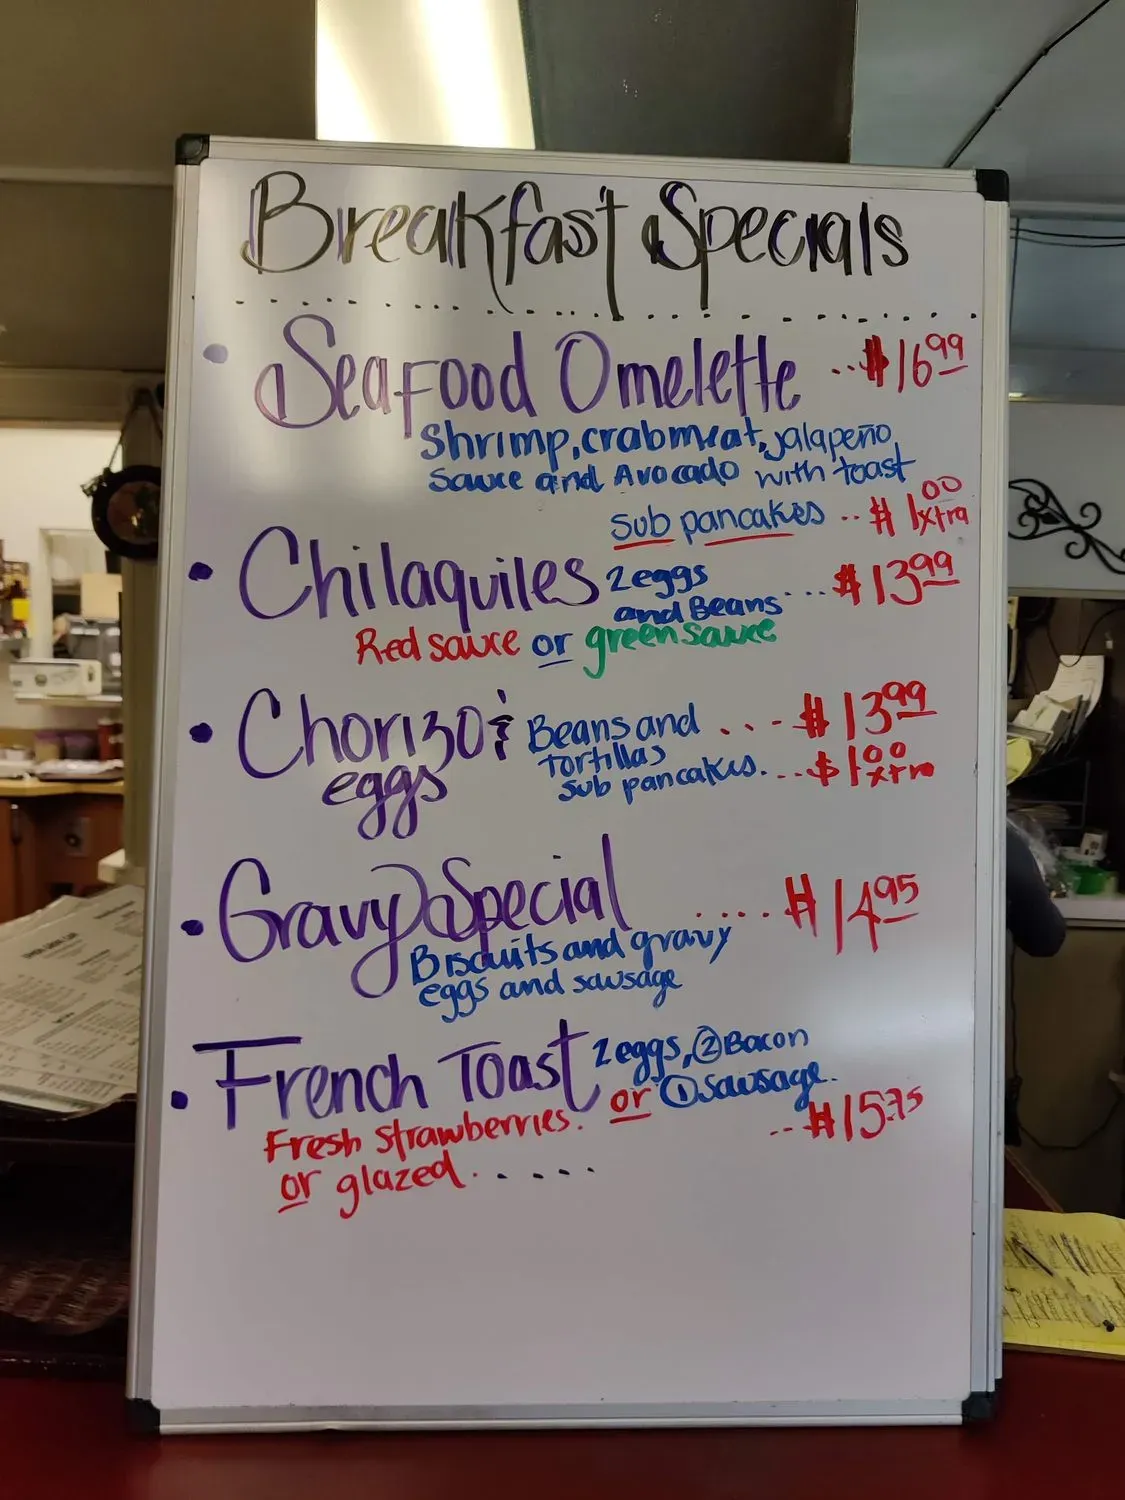 Breakfast Specials
. . . . . . . . . . . . . . . . . . . .
• Seafood Omelette .. $16 99
Shrimp, crabmeat, jalapeño
sauce and Avocado with toast
sub pancakes .. $1 00 xtra
• Chilaquiles 2 eggs
and Beans ... $13 99
Red sauce or green sauce
• Chorizo & Beans and ... $13 99
eggs tortillas
sub pancakes. ... $1 00 xtra
• Gravy Special .... $14 95
Biscuits and gravy
eggs and sausage
• French Toast 2 eggs, ② Bacon
or ① Sausage.
Fresh strawberries. ... $15.75
or glazed . . . . . .